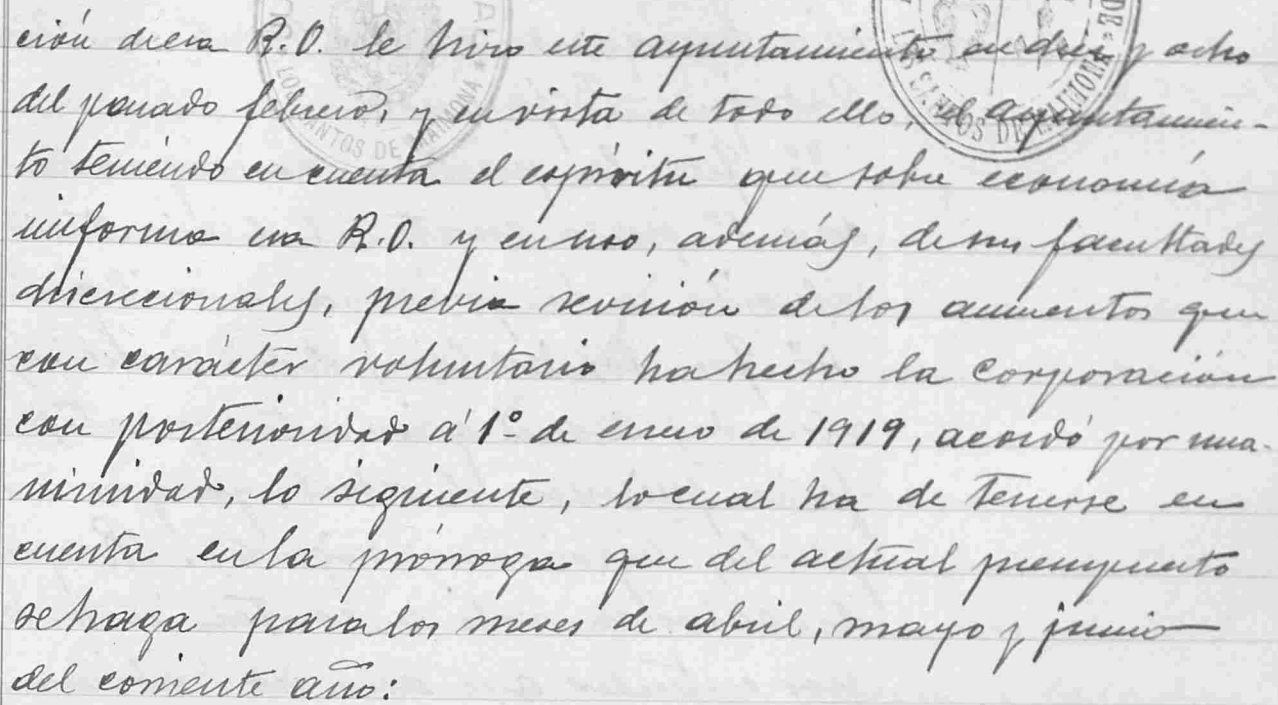 ción de esa R.O. le hizo este ayuntamiento en diez y ocho
del pasado febrero, y en vista de todo ello, el ayuntamien-
to teniendo en cuenta el espíritu que sobre economía
informa esa R.O. y en uso, además, de sus facultades
discrecionales, previa revisión de los aumentos que
con carácter voluntario ha hecho la Corporación
con posterioridad á 1º de enero de 1919, acordó por una-
nimidad, lo siguiente, lo cual ha de tenerse en
cuenta en la prórroga que del actual presupuesto
se haga para los meses de abril, mayo y junio
del corriente año:
LOS SANTOS DE MAIMONA
LOS SANTOS DE MAIMONA